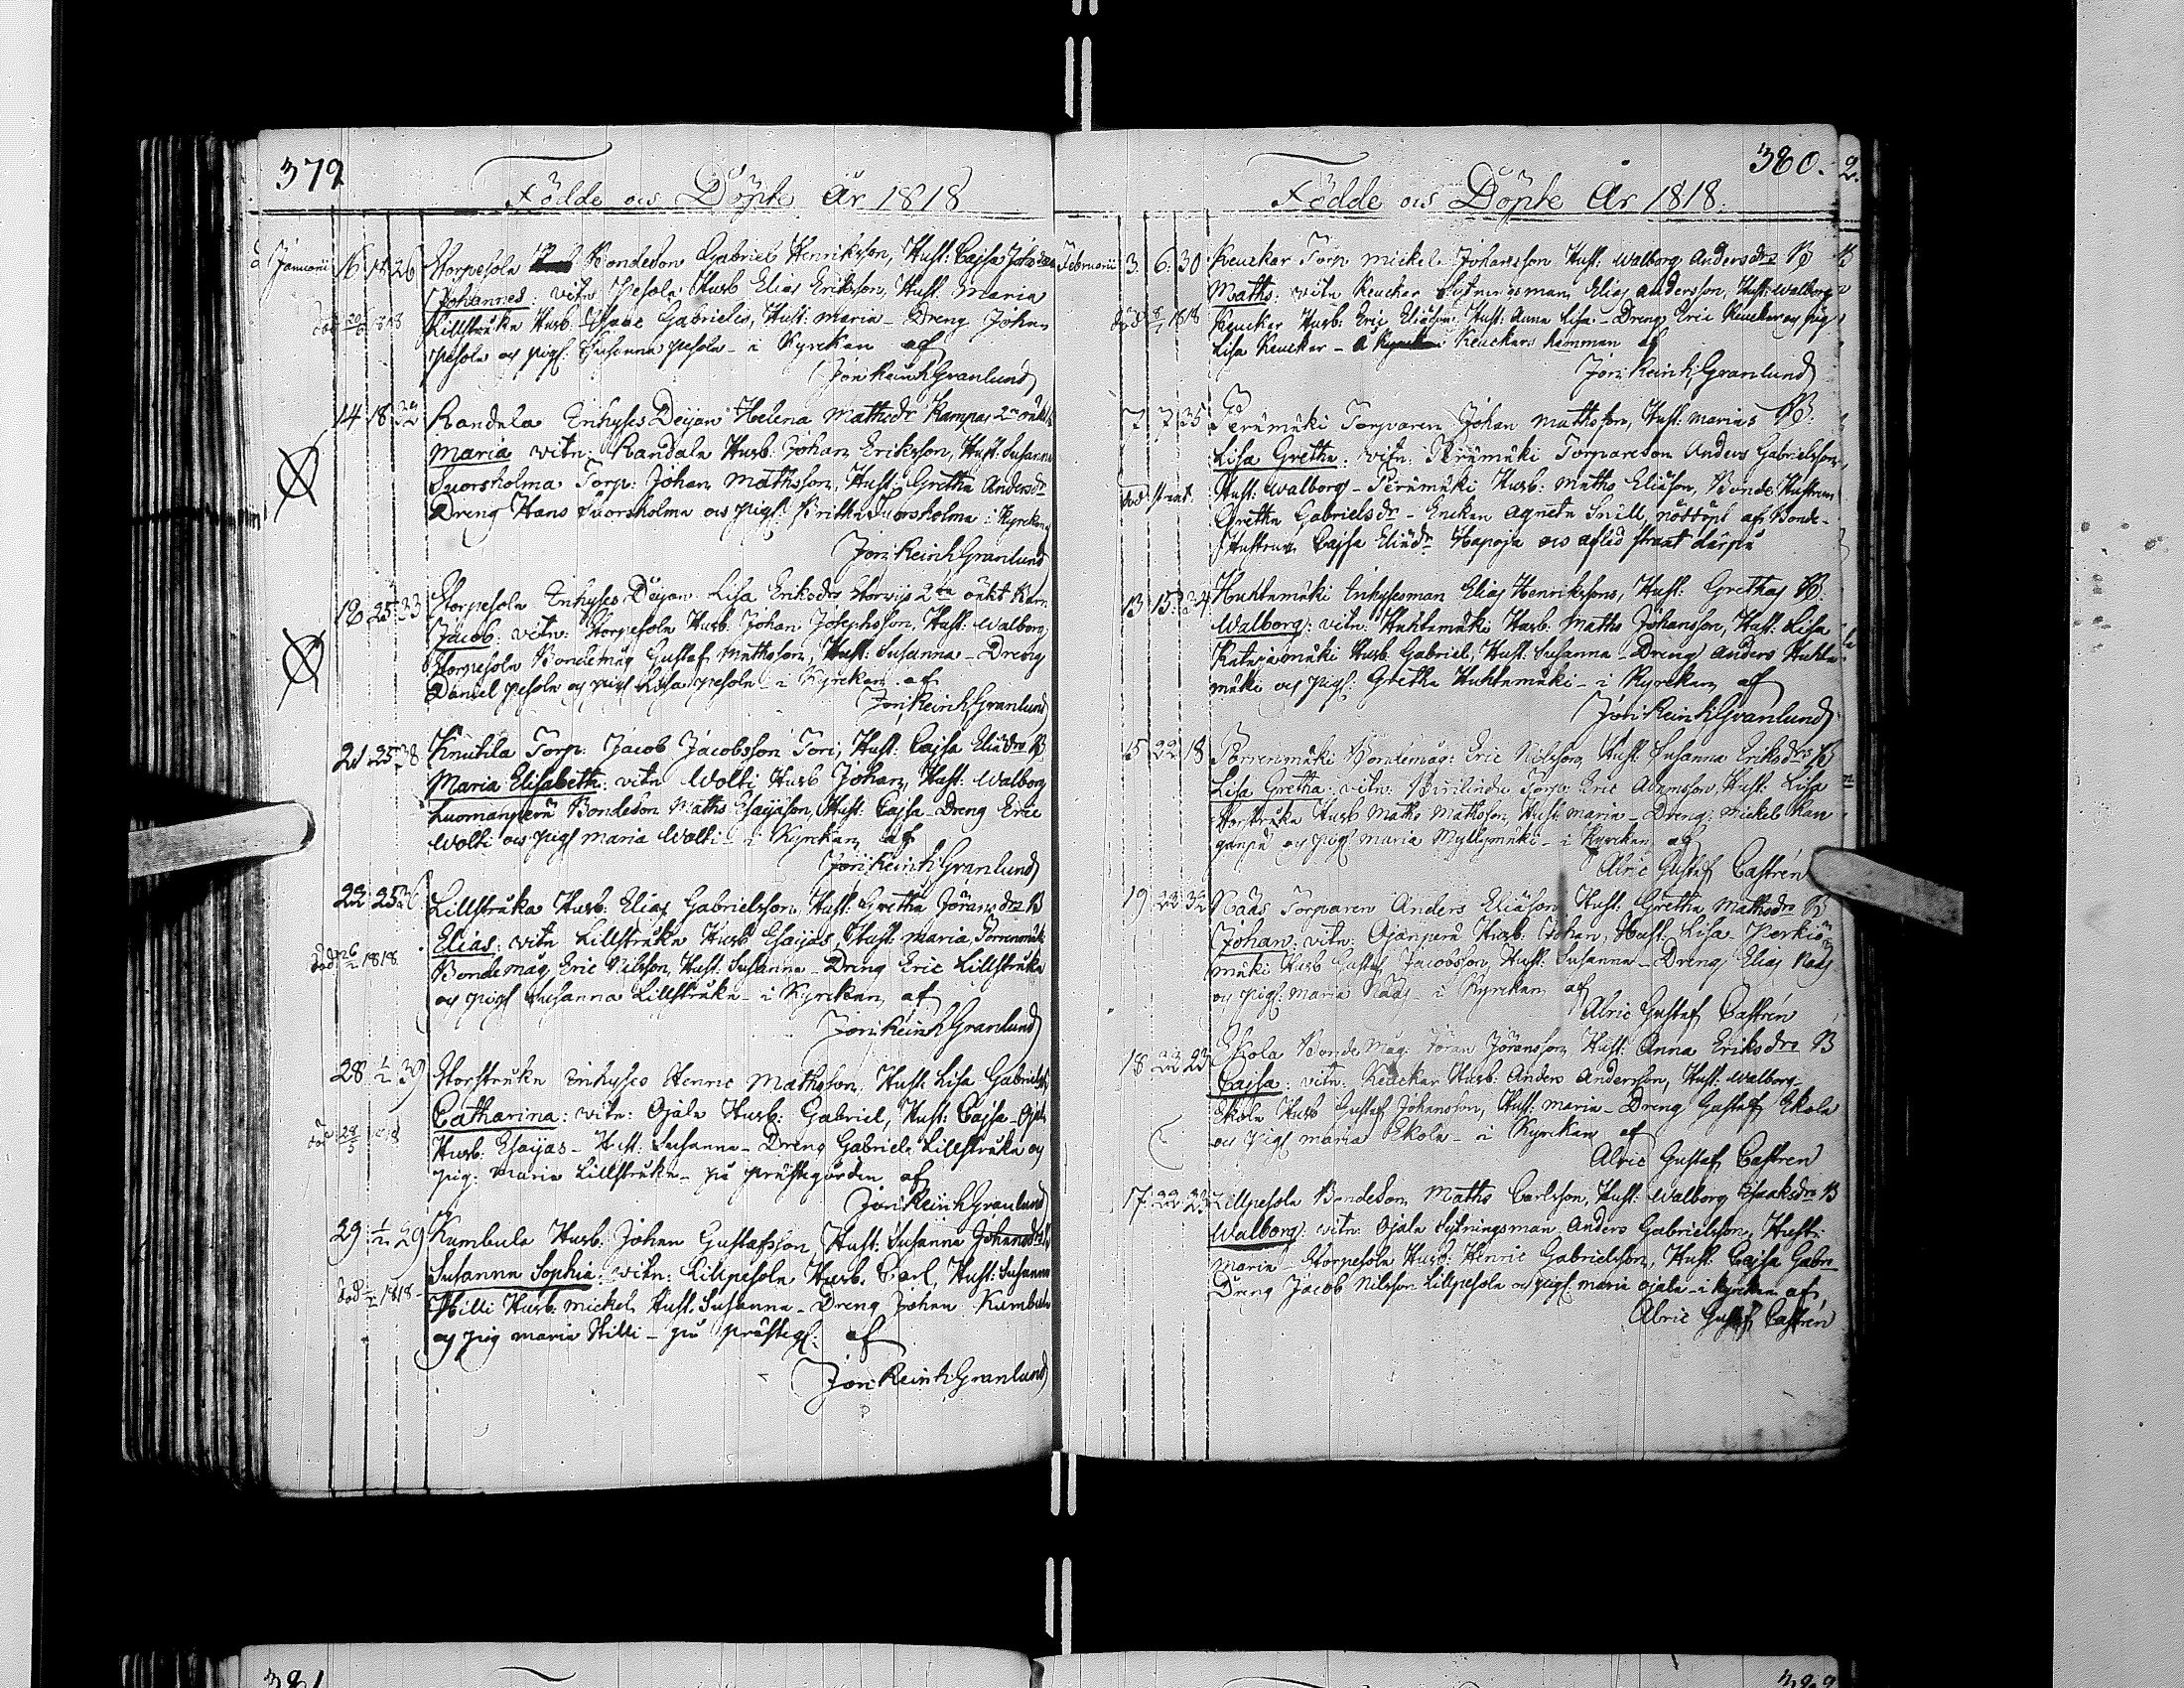 379
Födde och Döpte År 1818
Januarii 16 18 26 Storpesola Bondeson Gabriel Henriksson, Hust: Cajsa
Johannes: vitn: Pesola Husb Elias Eriksson, Hust: Maria
död 1818 Lillstruka Husb: Gabriels, Hust: Maria - Dreng Johan
Pesola och pig: Susanna Pesola - i Kyrckan af
Jöri Reinh Granlund
14 18 Randala Inhyses Deijan Helena Mathsdr Kampas
Maria vitn: Randala Husb: Johan Eriksson, Hust: Susanna
Suorsholma Torp: Johan Mathsson, Hust: Gretha Andersdr
Dreng Hans Suorsholma och pig: Britha Suorsholma i Kyrckan
Jöri Reinh Granlund
25 33 Storpesola Inhyses Deijan Lisa Eriksdrs
Jacob: vitn: Storpesola Husb: Johan Josephsson, Hust: Walborg
Storpesola Bondemåg Gustaf Mathsson, Hust: Susanna - Dreng
Daniel Pesola och pig Lisa Pesola - i Kyrckan af
Jöri Reinh Granlund
21 25 38 Knutila Torp: Jacob Jacobsson Tori, Hust: Cajsa Eliædrs B
Maria Elisabeth: vitn Wolti Husb Johan, Hust: Walborg
Luomanperä Bondeson Maths Esaijæson, Hust: Cajsa - Dreng Eric
Wolti och pig Maria Wolti - i Kyrckan af
Jöri Reinh Granlund
22 25 Lillstruka Husb. Elias Gabrielsson, Hust: Gretha Jöransdrs B
Elias: vitn Lillstruka Husb Esaijas, Hust: Maria,
död 1818 Bondemåg Eric Nilsson, Hust: Susanna - Dreng Eric Lillstruka
och pig Susanna Lillstruka - i Kyrckan af
Jöri Reinh Granlund
28 1/2 39 Storstruka Inhyses Henric Mathsson Hust: Lisa
Catharina: vitn: Ojala Husb: Gabriel, Hust: Cajsa -
död 28/5 Husb: Esaijas - Hust: Susanna - Dreng Gabriel Lillstruka och
pig: Maria Lillstruka - på prästegården af
Jöri Reinh Granlund
29 1/2 29 Kumbula Husb: Johan Gustafsson, Hust: Susanna
Susanna Sophia: vitn: Lillpesola Husb. Carl, Hust: Susanna
död 1818 Hilli Husb: Mickel, Hust: Susanna - Dreng Johan Kumbula
och pig Maria Hilli - på präste af
Jöri Reinh Granlund
380.
Födde och Döpte År 1818.
Februarii 3 6 30 Keuckar Torp Mickel Johansson Hust: Walborg Andersdrs B
Maths: vitn Keuckar Elias Andersson, Hust: Walborg
död 1818 Keuckar Husb: Eric Eliæson, Hust: Anna Lisa - Dreng Eric Keuckar och pig
Lisa Keuckar - å Keuckars hemman af
Jöri Reinh Granlund
7 7 35 Perämäki Torparen Johan Mathsson, Hust: Marias B:
Lisa Gretha: vitn: Perämäki Torpareson Anders Gabrielsson,
död strax. Hust: Walborg - Perämäki Husb: Maths Eliæson, Bonde Hustrun
Gretha Gabrielsdr - Enckan Agneta Snill, nöddöpt af Bonde-
Hustrun Cajsa Eliædr Hapoja och afled strax därpå
13 15 24 Huhtamäki Inhysesman Elias Henrikssons, Hust: Grethas B:
Walborg: vitn: Huhtamäki Husb: Maths Johansson, Hust: Lisa
Katajamäki Husb Gabriel, Hust: Susanna - Dreng Anders Huhta
mäki och pig: Gretha Huhtamäki - i Kyrckan af
Jöri Reinh Granlund
15 22 18 Porrenmäki Bondemåg: Eric Nilsson, Hust: Susanna Eriksdrs B
Lisa Gretha: vitn: Torp: Eric Hust: Lisa
Storstruka Husb Maths Mathsson, Hust: Maria - Dreng: Mickel Kan
ganpä och pig Maria Myllymäki - i Kyrckan af
Alric Gustaf Castrén
19 22 Naas Torparen Anders Eliæson, Hust: Gretha Mathsdrs B
Johan: vitn: Ojanperä Husb: Johan, Hust: Lisa -
mäki Husb Gustaf Jacobsson, Hust: Susanna - Dreng Elias Naas
och pig: Maria Naas - i Kyrckan af
Alric Gustaf Castrén
18 22 23 Ekola Bonde Måg: Jöran Jöransson Hust: Anna Eriksdrs B
Cajsa: vitn: Keuckar Husb: Anders Andersson, Hust: Walborg -
Ekola Husb Gustaf Johansson, Hust: Maria - Dreng Gustaf Ekola
och pig Maria Ekola - i Kyrckan af
Alric Gustaf Castrén
17 22 23 Lillpesola Bondeson Maths Carlsson, Hust: Walborg Esaaksdrs B
Walborg: vitn: Ojala Anders Gabrielsson, Hust:
Maria - Storpesola Husb: Henric Gabrielsson, Hust: Cajsa
Dreng Jacob Nilsson Lillpesola och pig: Maria Ojala - i Kyrckan af
Alric Gustaf Castrén
381